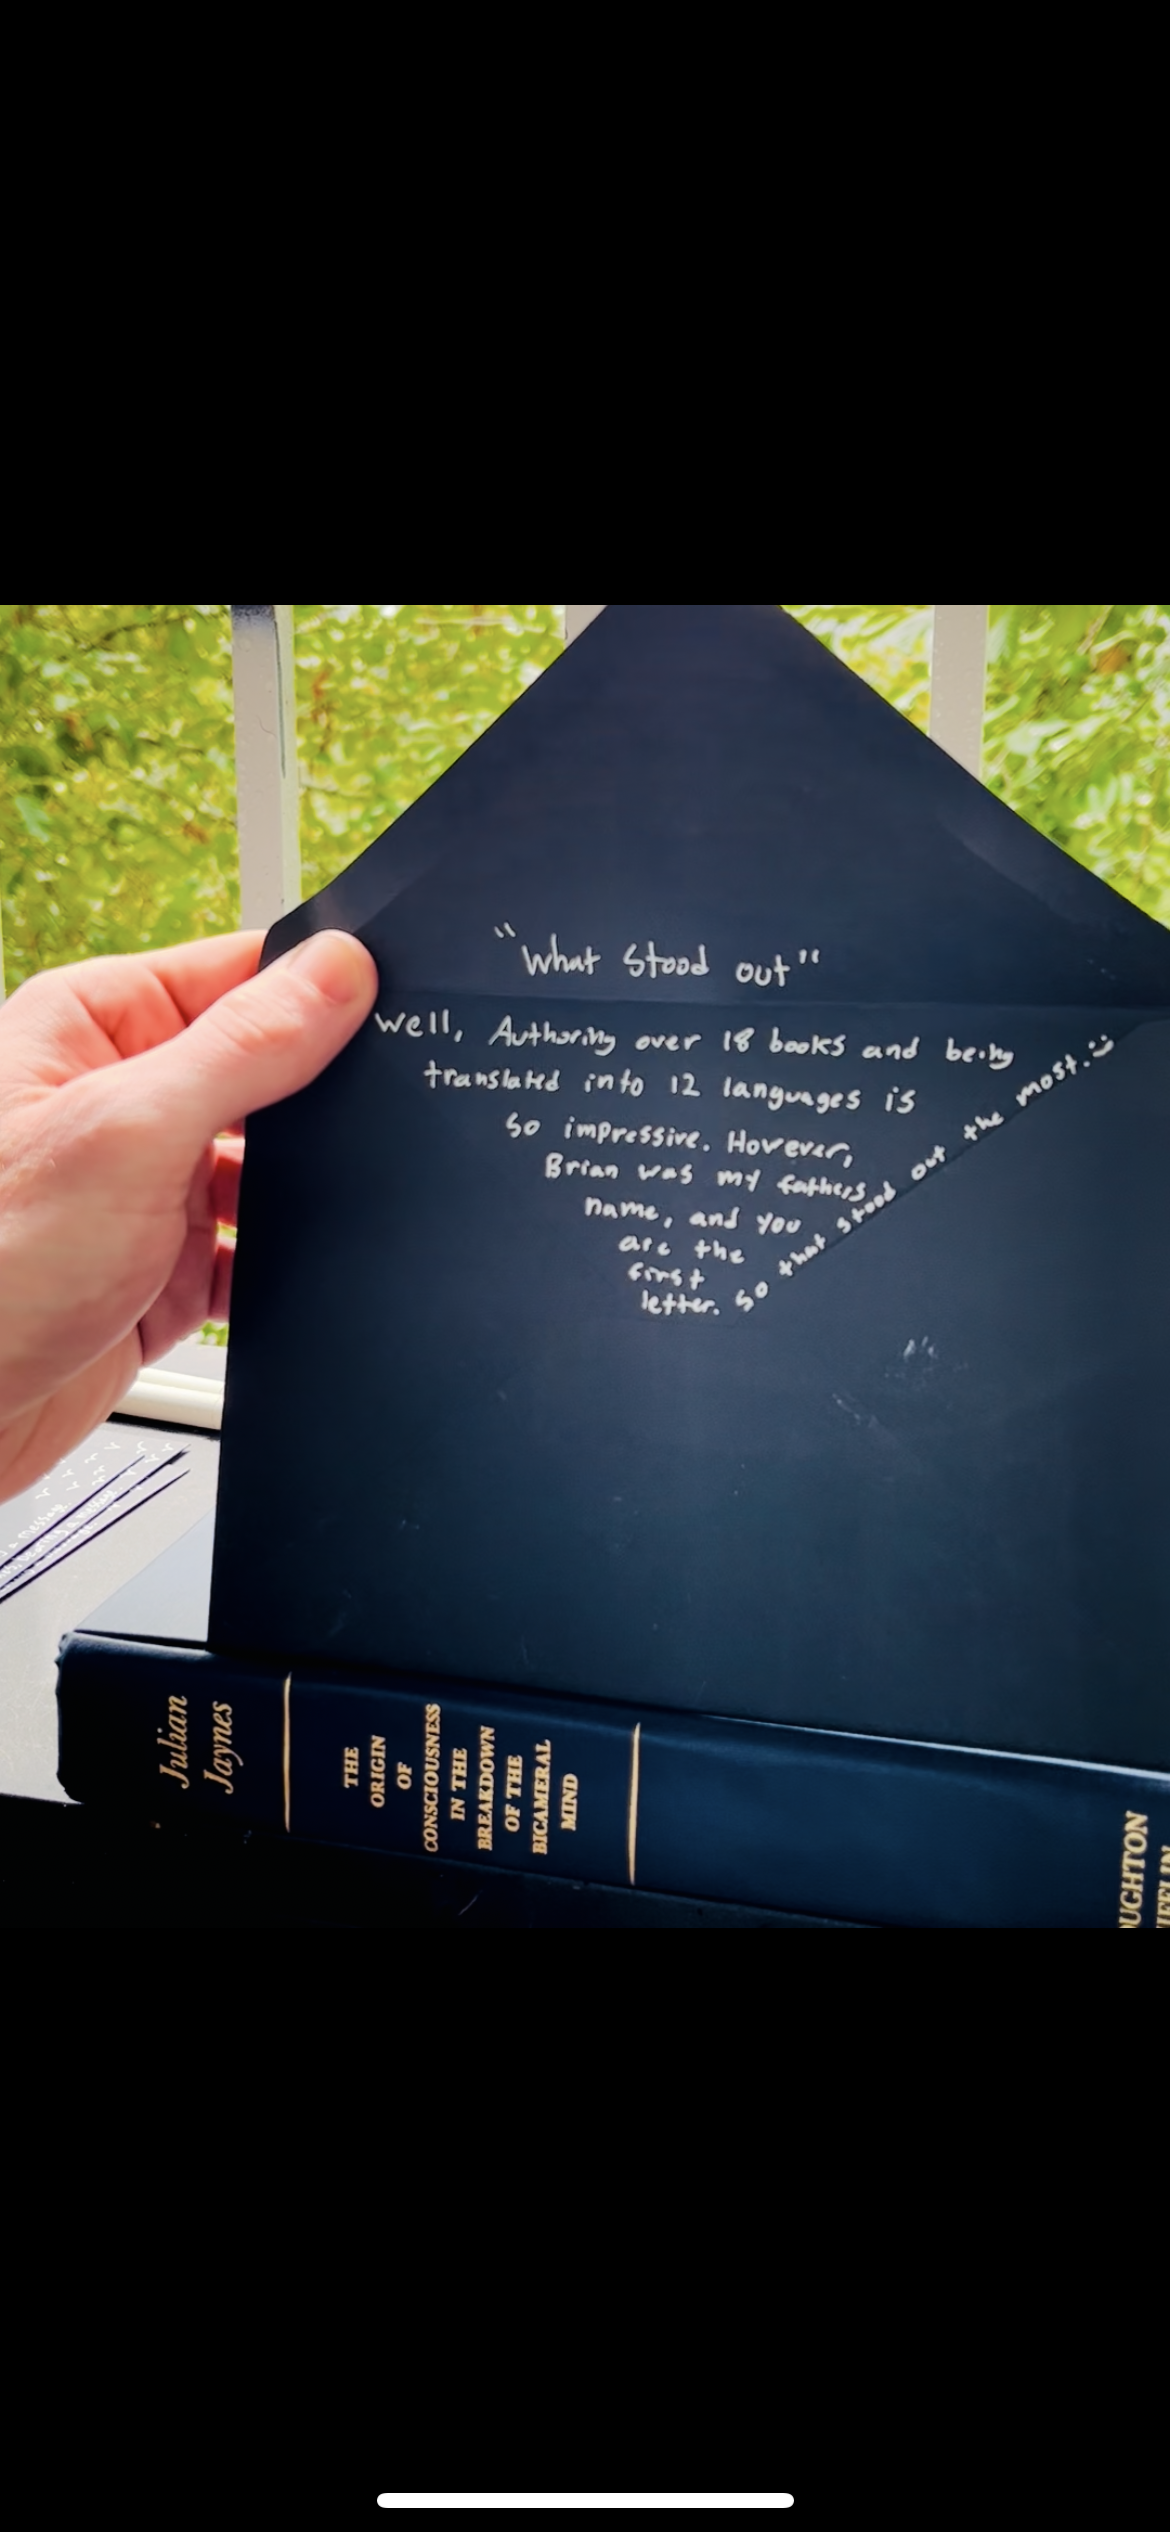 "What stood out"
Well, Authoring over 18 books and being
translated into 12 languages is
so impressive. However,
Brian was my fathers
name, and you
are the
first
letter. So that stood out the most. :)
a message
a message
Julian
Jaynes
THE
ORIGIN
OF
CONSCIOUSNESS
IN THE
BREAKDOWN
OF THE
BICAMERAL
MIND
OUGHTON
IFFLIN